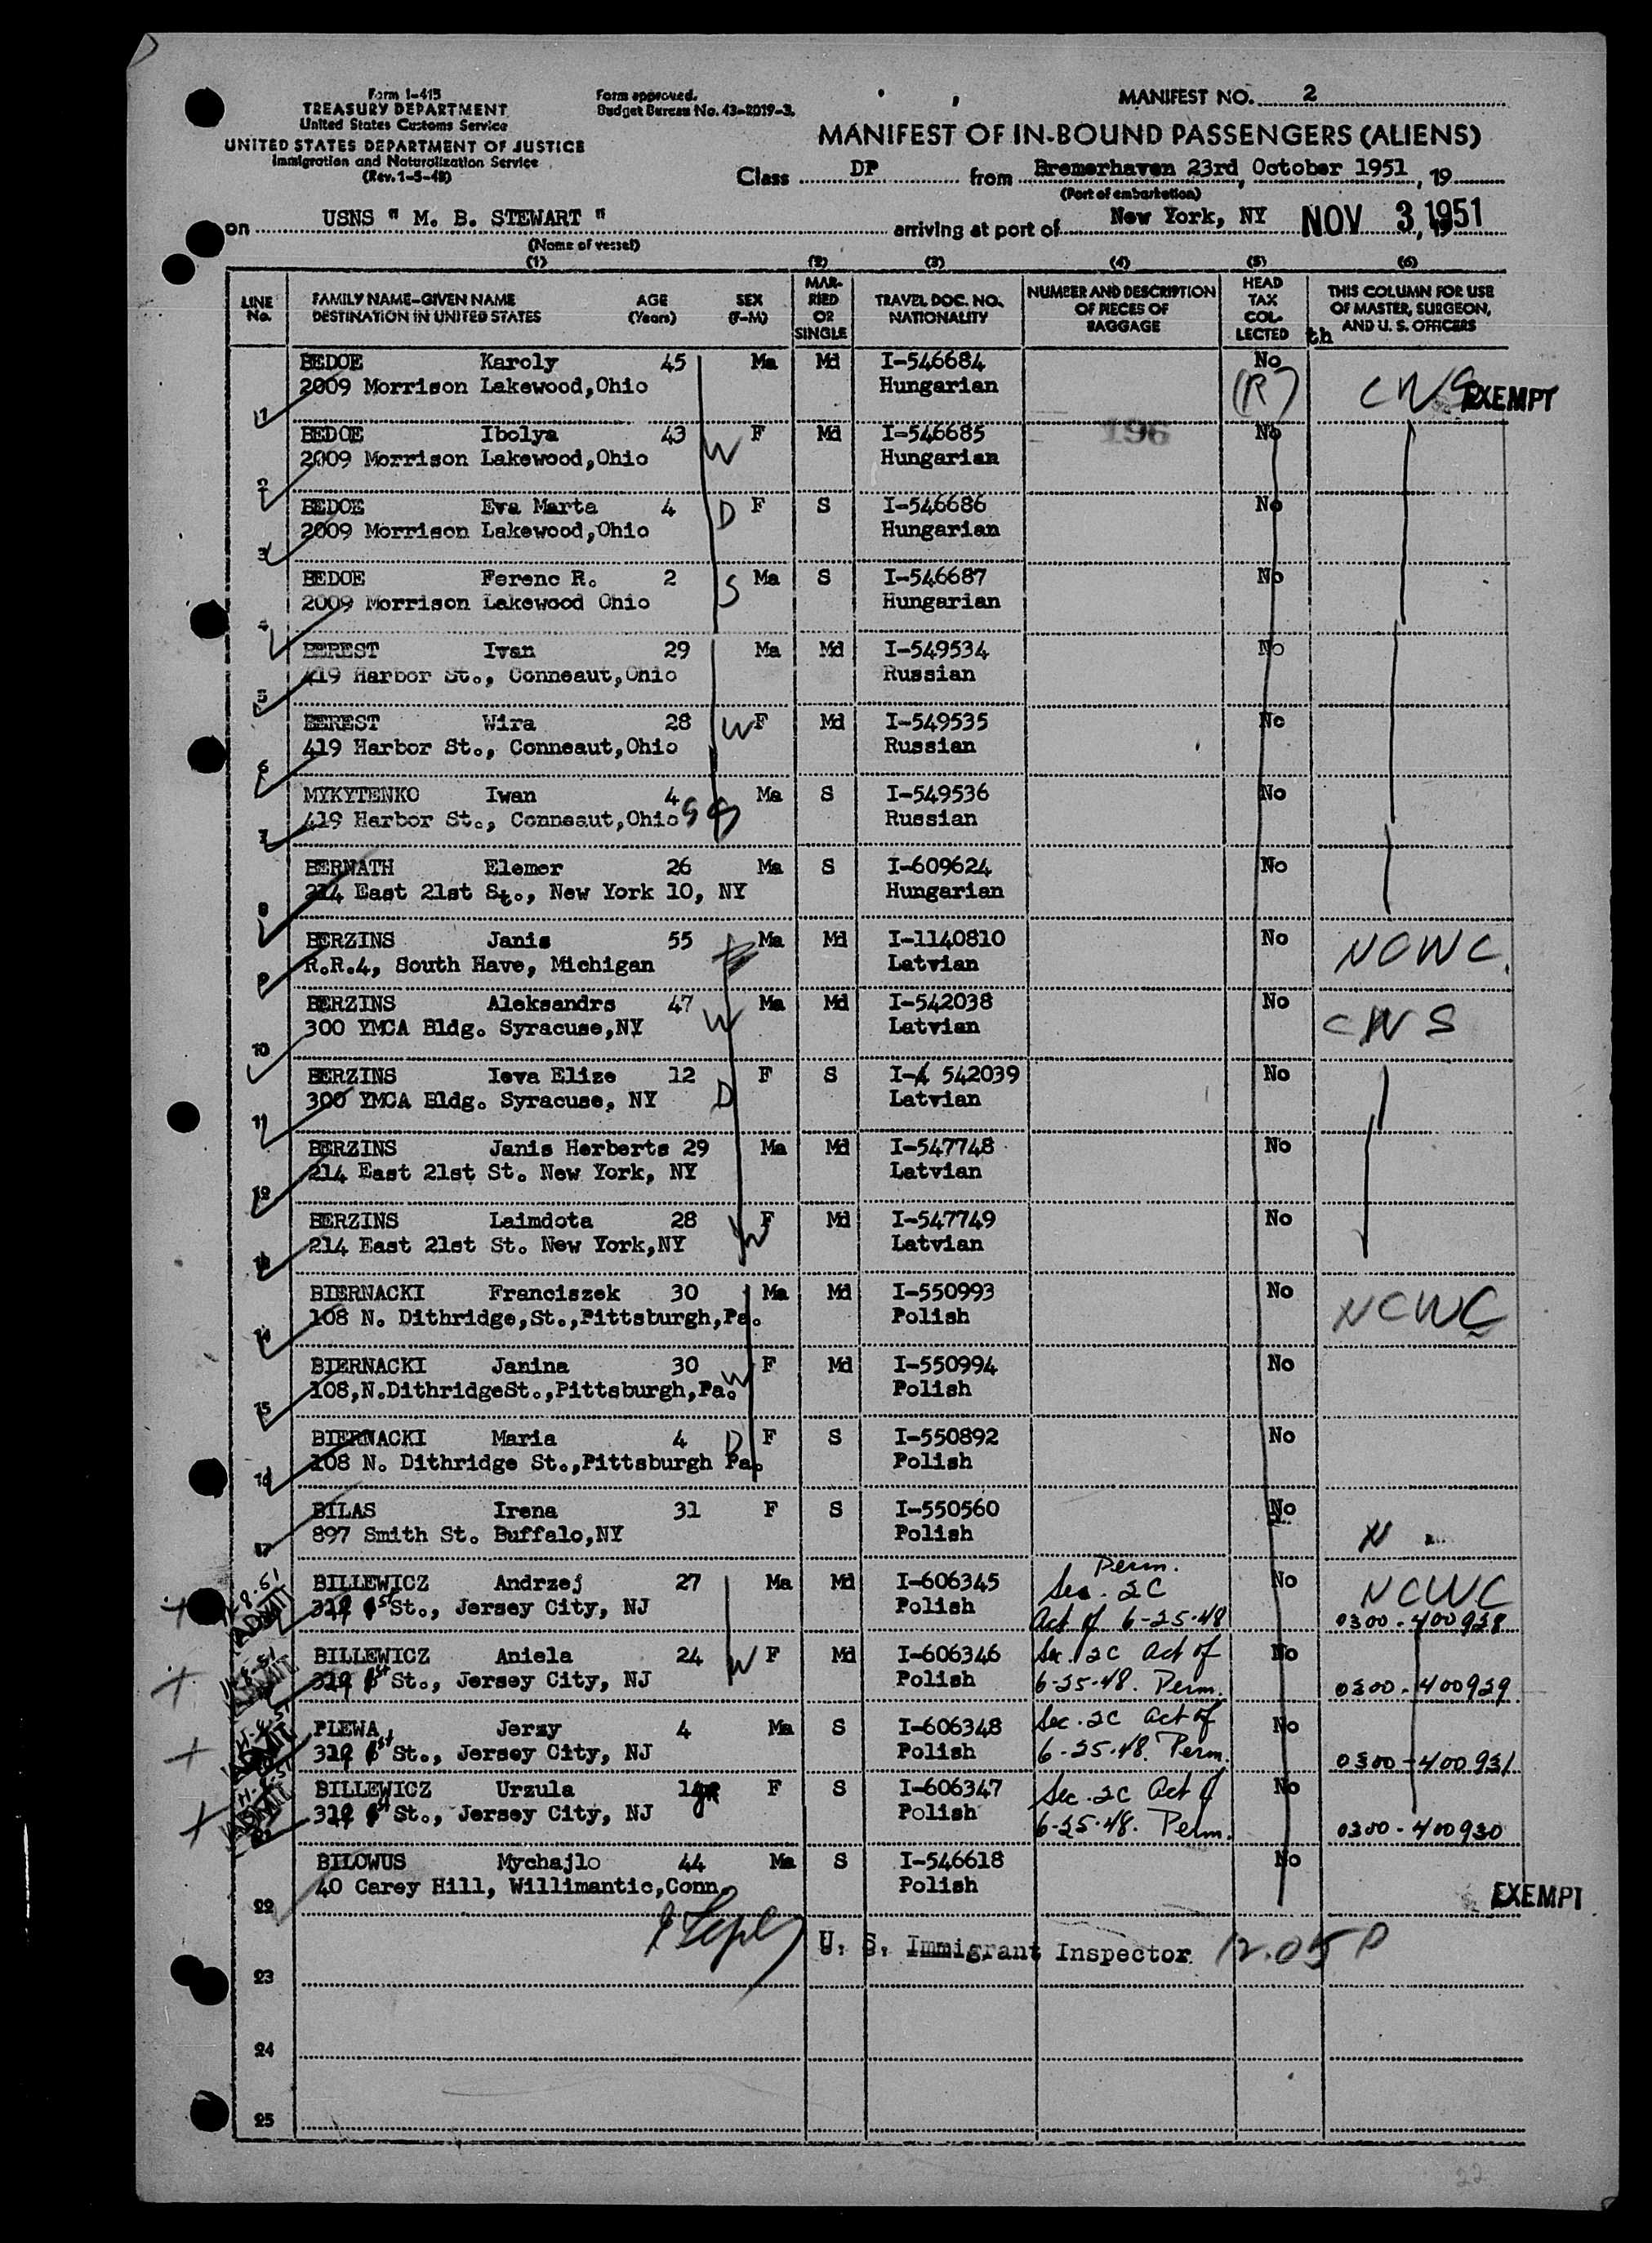 Form I-415
TREASURY DEPARTMENT
United States Customs Service
UNITED STATES DEPARTMENT OF JUSTICE
Immigration and Naturalization Service
(Rev. 1-5-48)
Form approved.
Budget Bureau No. 43-R019-3.
MANIFEST NO. 2
MANIFEST OF IN-BOUND PASSENGERS (ALIENS)
Class DP from Bremerhaven 23rd, October 1951, 19
(Port of embarkation)
on USNS " M. B. STEWART " arriving at port of New York, NY NOV 3, 1951
(Name of vessel)
(1) (2) (3) (4) (5) (6)
LINE No. FAMILY NAME-GIVEN NAME DESTINATION IN UNITED STATES AGE (Years) SEX (F-M) MARRIED OR SINGLE TRAVEL DOC. NO. NATIONALITY NUMBER AND DESCRIPTION OF PIECES OF BAGGAGE HEAD TAX COLLECTED THIS COLUMN FOR USE OF MASTER, SURGEON, AND U. S. OFFICERS
th
BEDOE Karoly 45 Ma Md I-546684 No
1 2009 Morrison Lakewood,Ohio Hungarian (R) CWS EXEMPT
BEDOE Ibolya 43 W F Md I-546685 196 No
2 2009 Morrison Lakewood,Ohio Hungarian
BEDOE Eva Marta 4 D F S I-546686 No
3 2009 Morrison Lakewood,Ohio Hungarian
BEDOE Ferenc R. 2 S Ma S I-546687 No
4 2009 Morrison Lakewood Ohio Hungarian
BEREST Ivan 29 Ma Md I-549534 No
5 419 Harbor St., Conneaut,Ohio Russian
BEREST Wira 28 W F Md I-549535 No
6 419 Harbor St., Conneaut,Ohio Russian
MYKYTENKO Iwan 4 Ma S I-549536 No
7 419 Harbor St., Conneaut,Ohio Russian
BERNATH Elemer 26 Ma S I-609624 No
8 214 East 21st St., New York 10, NY Hungarian
BERZINS Janis 55 Ma Md I-1140810 No NCWC
9 R.R.4, South Have, Michigan Latvian
BERZINS Aleksandrs 47 W Ma Md I-542038 No CWS
10 300 YMCA Bldg. Syracuse,NY Latvian
BERZINS Ieva Elize 12 F S I- 542039 No
11 300 YMCA Bldg. Syracuse, NY D Latvian
BERZINS Janis Herberts 29 Ma Md I-547748 No
12 214 East 21st St. New York, NY Latvian
BERZINS Laimdota 28 W F Md I-547749 No
13 214 East 21st St. New York,NY Latvian
BIERNACKI Franciszek 30 Ma Md I-550993 No NCWC
14 108 N. Dithridge,St.,Pittsburgh,Pa. Polish
BIERNACKI Janina 30 W F Md I-550994 No
15 108,N.DithridgeSt.,Pittsburgh,Pa. Polish
BIERNACKI Maria 4 D F S I-550892 No
16 108 N. Dithridge St.,Pittsburgh Pa. Polish
BILAS Irena 31 F S I-550560 No
17 897 Smith St. Buffalo,NY Polish N
BILLEWICZ Andrzej 27 Ma Md I-606345 Perm. Sec. 2C No NCWC
ADMIT 319 1st St., Jersey City, NJ Polish Act of 6-25-48 0300-400928
BILLEWICZ Aniela 24 W F Md I-606346 Sec. 2C Act of No
ADMIT 319 1st St., Jersey City, NJ Polish 6-25-48. Perm. 0300-400929
PLEWA, Jerzy 4 Ma S I-606348 Sec. 2C Act of No
ADMIT 319 1st St., Jersey City, NJ Polish 6-25-48. Perm. 0300-400931
BILLEWICZ Urzula F S I-606347 Sec. 2C Act of No
ADMIT 319 1st St., Jersey City, NJ Polish 6-25-48. Perm. 0300-400930
BILOWUS Mychajlo 44 Ma S I-546618 No
22 40 Carey Hill, Willimantic,Conn. Polish EXEMPT
U. S. Immigrant Inspector 12.05 P
23
24
25
22